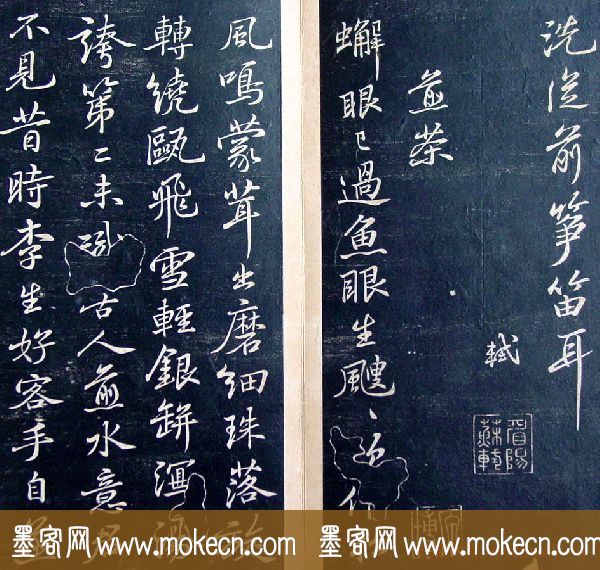 洗從前箏笛耳
軾
眉陽蘇軾
煎茶
蠏眼已過魚眼生颼〻欲作
風鳴蒙茸出磨細珠落
轉繞甌飛雪輕銀缾瀉
誇第二未識古人煎水意
不見昔時李生好客手自
墨客网 www.mokecn.com
墨客网 www.mokecn.com